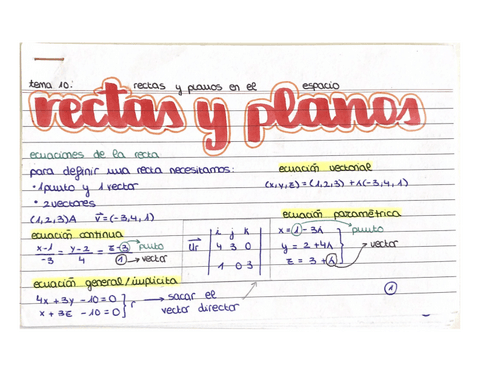 tema 10: rectas y planos en el espacio
rectas y planos
ecuaciones de la recta
para definir una recta necesitamos:
• 1 punto y 1 vector
• 2 vectores
(1,2,3)A v⃗=(-3,4,1)
ecuación continua
x-1/-3 = y-2/4 = z-3/1 → punto → vector
ecuación general/implícita
4x+3y-10=0
x+3z-10=0 } r → sacar el vector director
Ur→ | i j k |
| 4 3 0 |
| 1 0 3 |
ecuación vectorial
(x,y,z)=(1,2,3)+λ(-3,4,1)
ecuación paramétrica
x=1-3λ → punto
y=2+4λ → vector
z=3+λ
1